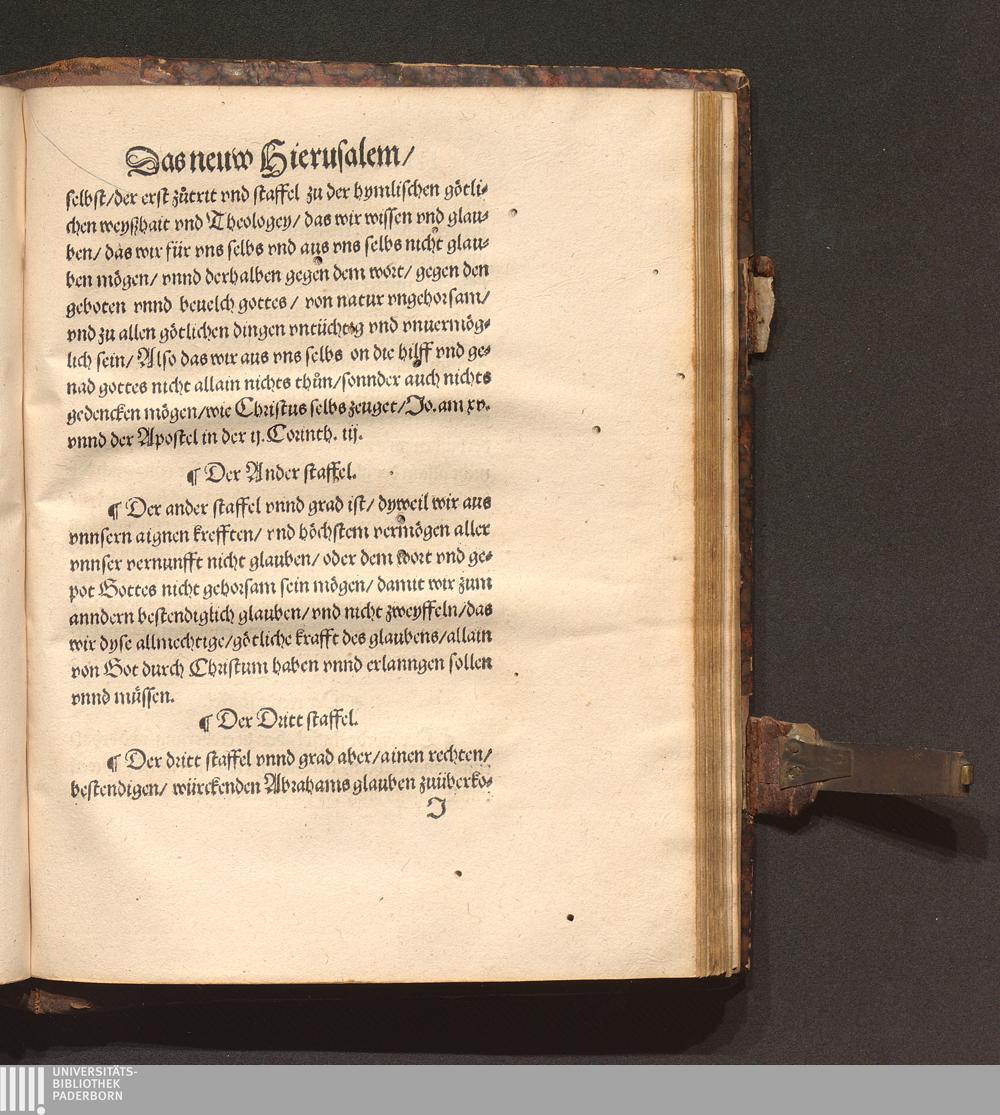 Das neuw Hierusalem/
selbst/der erst zůtrit vnd staffel zu der hymlischen götli⸗
chen weyßhait vnd Theologey/ das wir wissen vnd glau⸗
ben/ das wir für vns selbs vnd aus vns selbs nicht glau⸗
ben mögen/ vnnd derhalben gegen dem wort/ gegen den
geboten vnnd beuelch gottes/ von natur vngehorsam/
vnd zu allen götlichen dingen vntüchtig vnd vnuermög⸗
lich sein/ Also das wir aus vns selbs on die hilff vnd ge⸗
nad gottes nicht allain nichts thůn/sonnder auch nichts
gedencken mögen/wie Christus selbs zeuget/Jo. am xv.
vnnd der Apostel in der ij. Corinth. iij.
¶ Der Ander staffel.
¶ Der ander staffel vnnd grad ist/ dyweil wir aus
vnnsern aignen krefften/ vnd höchstem vermögen aller
vnnser vernunfft nicht glauben/ oder dem wort vnd ge⸗
pot Gottes nicht gehorsam sein mögen/ damit wir zum
anndern bestendiglich glauben/ vnd nicht zweyffeln/das
wir dyse allmechtige/götliche krafft des glaubens/allain
von Got durch Christum haben vnnd erlanngen sollen
vnnd müssen.
¶ Der Dritt staffel.
¶ Der dritt staffel vnnd grad aber/ainen rechten/
bestendigen/ würckenden Abrahams glauben zuüberko⸗
J
UNIVERSITÄTS-
BIBLIOTHEK
PADERBORN